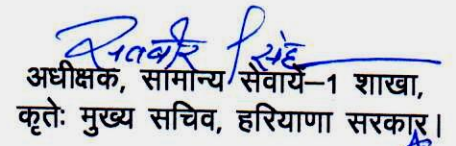 सतबीर सिंह
अधीक्षक, सामान्य सेवायें–1 शाखा,
कृतेः मुख्य सचिव, हरियाणा सरकार।